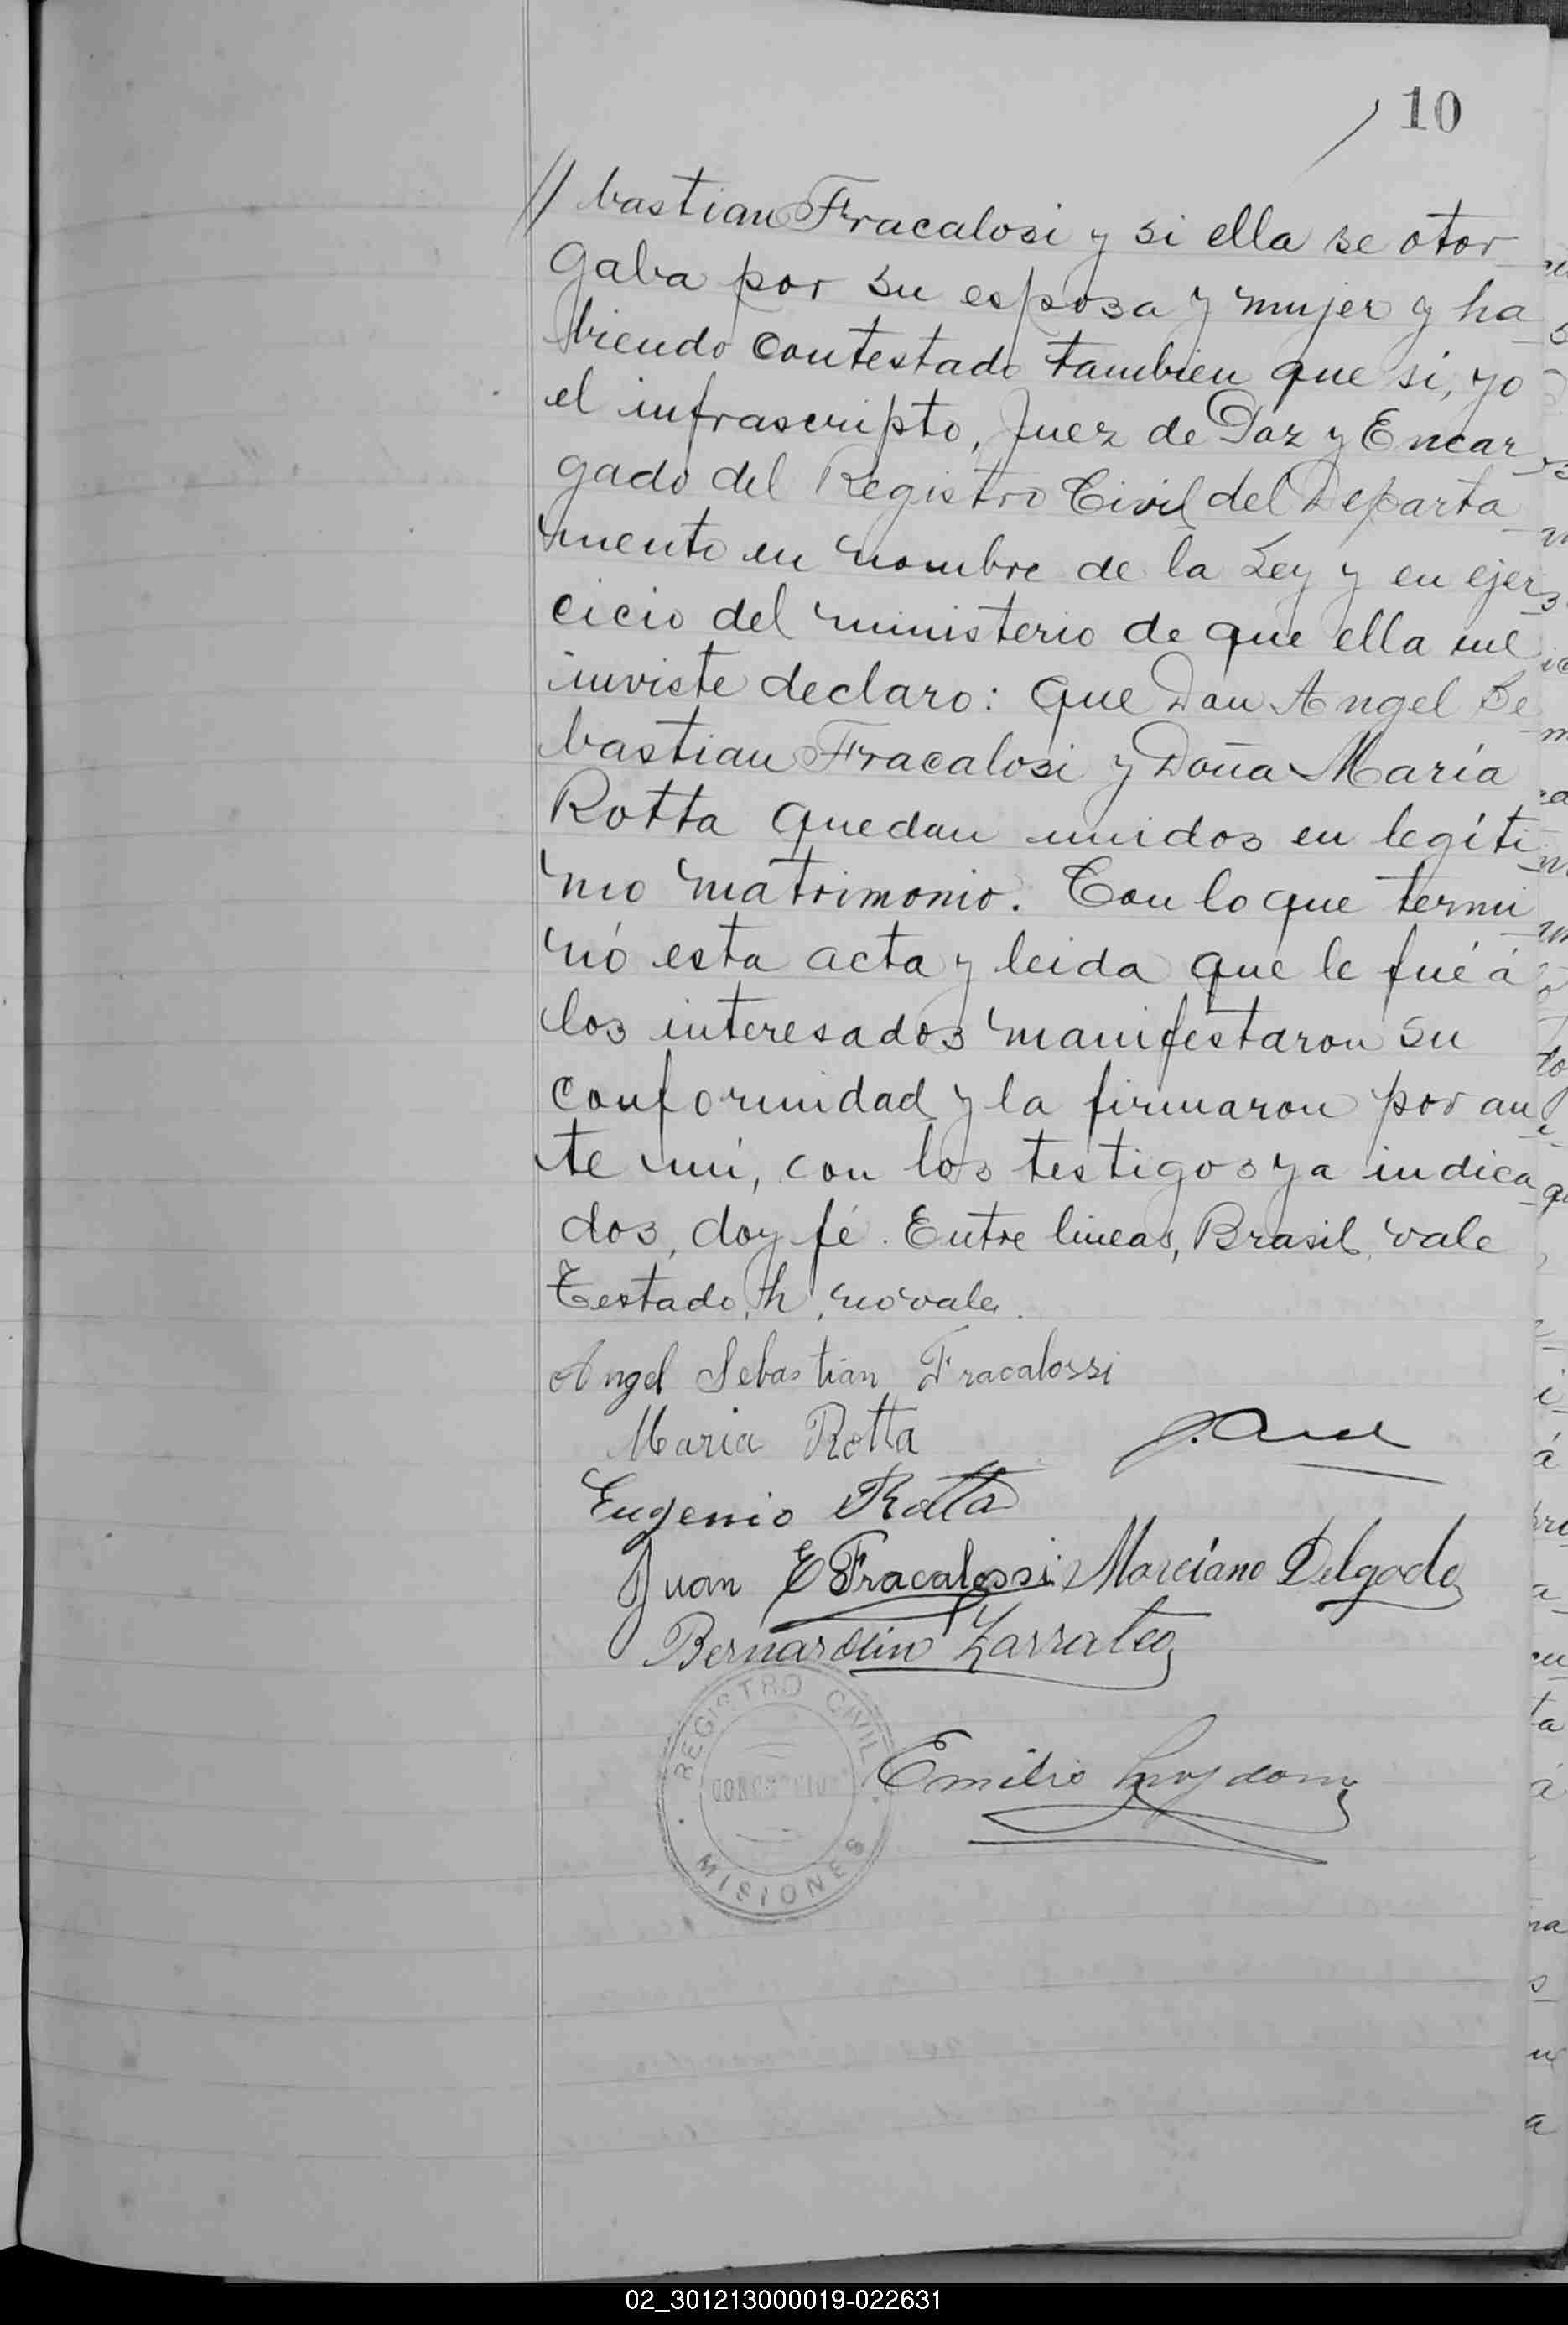 10
// bastian Fracalosi y si ella se otor
gaba por su esposa y mujer y ha
biendo contestado tambien que si, yo
el infrascripto, Juez de Paz y Encar
gado del Registro Civil del Departa
mento en nombre de la Ley y en ejer
cicio del ministerio de que ella me
inviste declaro: que Don Angel Se
bastian Fracalosi y Doña María
Rotta quedan unidos en legíti
mo matrimonio. Con lo que termi
nó esta acta y leida que le fué á
los interesados manifestaron su
conformidad y la firmaron por an
te mi, con los testigos ya indica
dos, doy fé. Entre lineas, Brasil, vale
Testado, h, no vale.
Angel Sebastian Fracalossi
Maria Rotta
Eugenio Rotta
Juan E Fracalossi Marciano Delgado
Bernardin Zarratea
REGISTRO CIVIL
MISIONES
Emilio
02_301213000019-022631